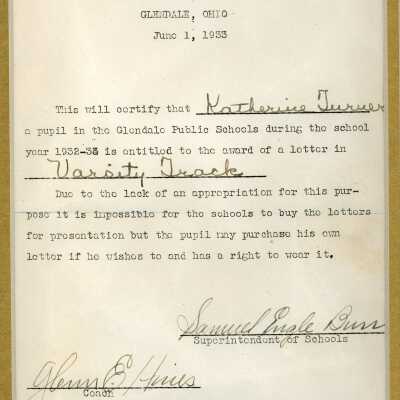 GLENDALE, OHIO
June 1, 1933
This will certify that Katherine Turner
a pupil in the Glendale Public Schools during the school
year 1932-33 is entitled to the award of a letter in
Varsity Track
Due to the lack of an appropriation for this pur-
pose it is impossible for the schools to buy the letters
for presentation but the pupil may purchase his own
letter if he wishes to and has a right to wear it.
Samuel Engle Burr
Superintendent of Schools
Glenn E. Hines
Coach